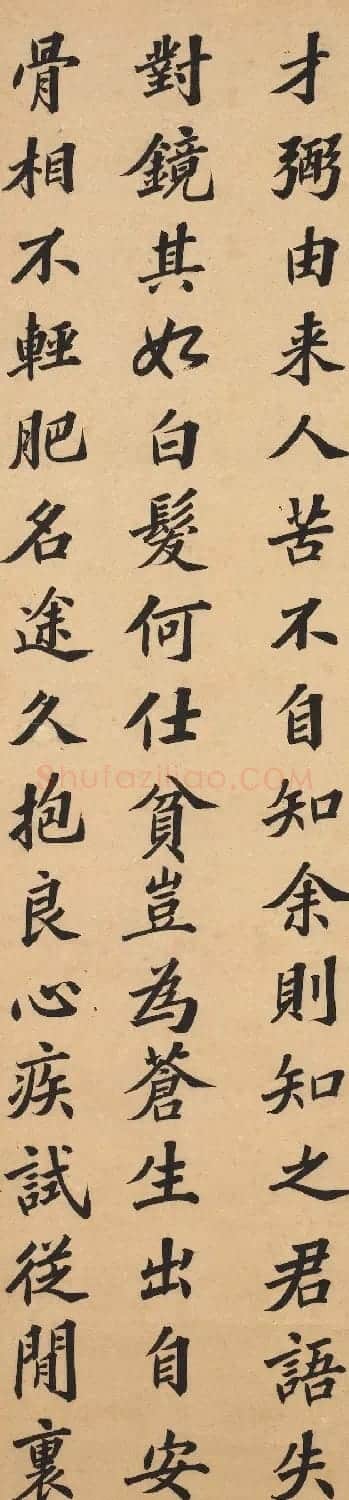 才弼由来人苦不自知余則知之君語失
對鏡其如白髮何仕貧豈為蒼生出自安
骨相不輕肥名途久抱良心疾試從閒裏
Shufaziliao.COM